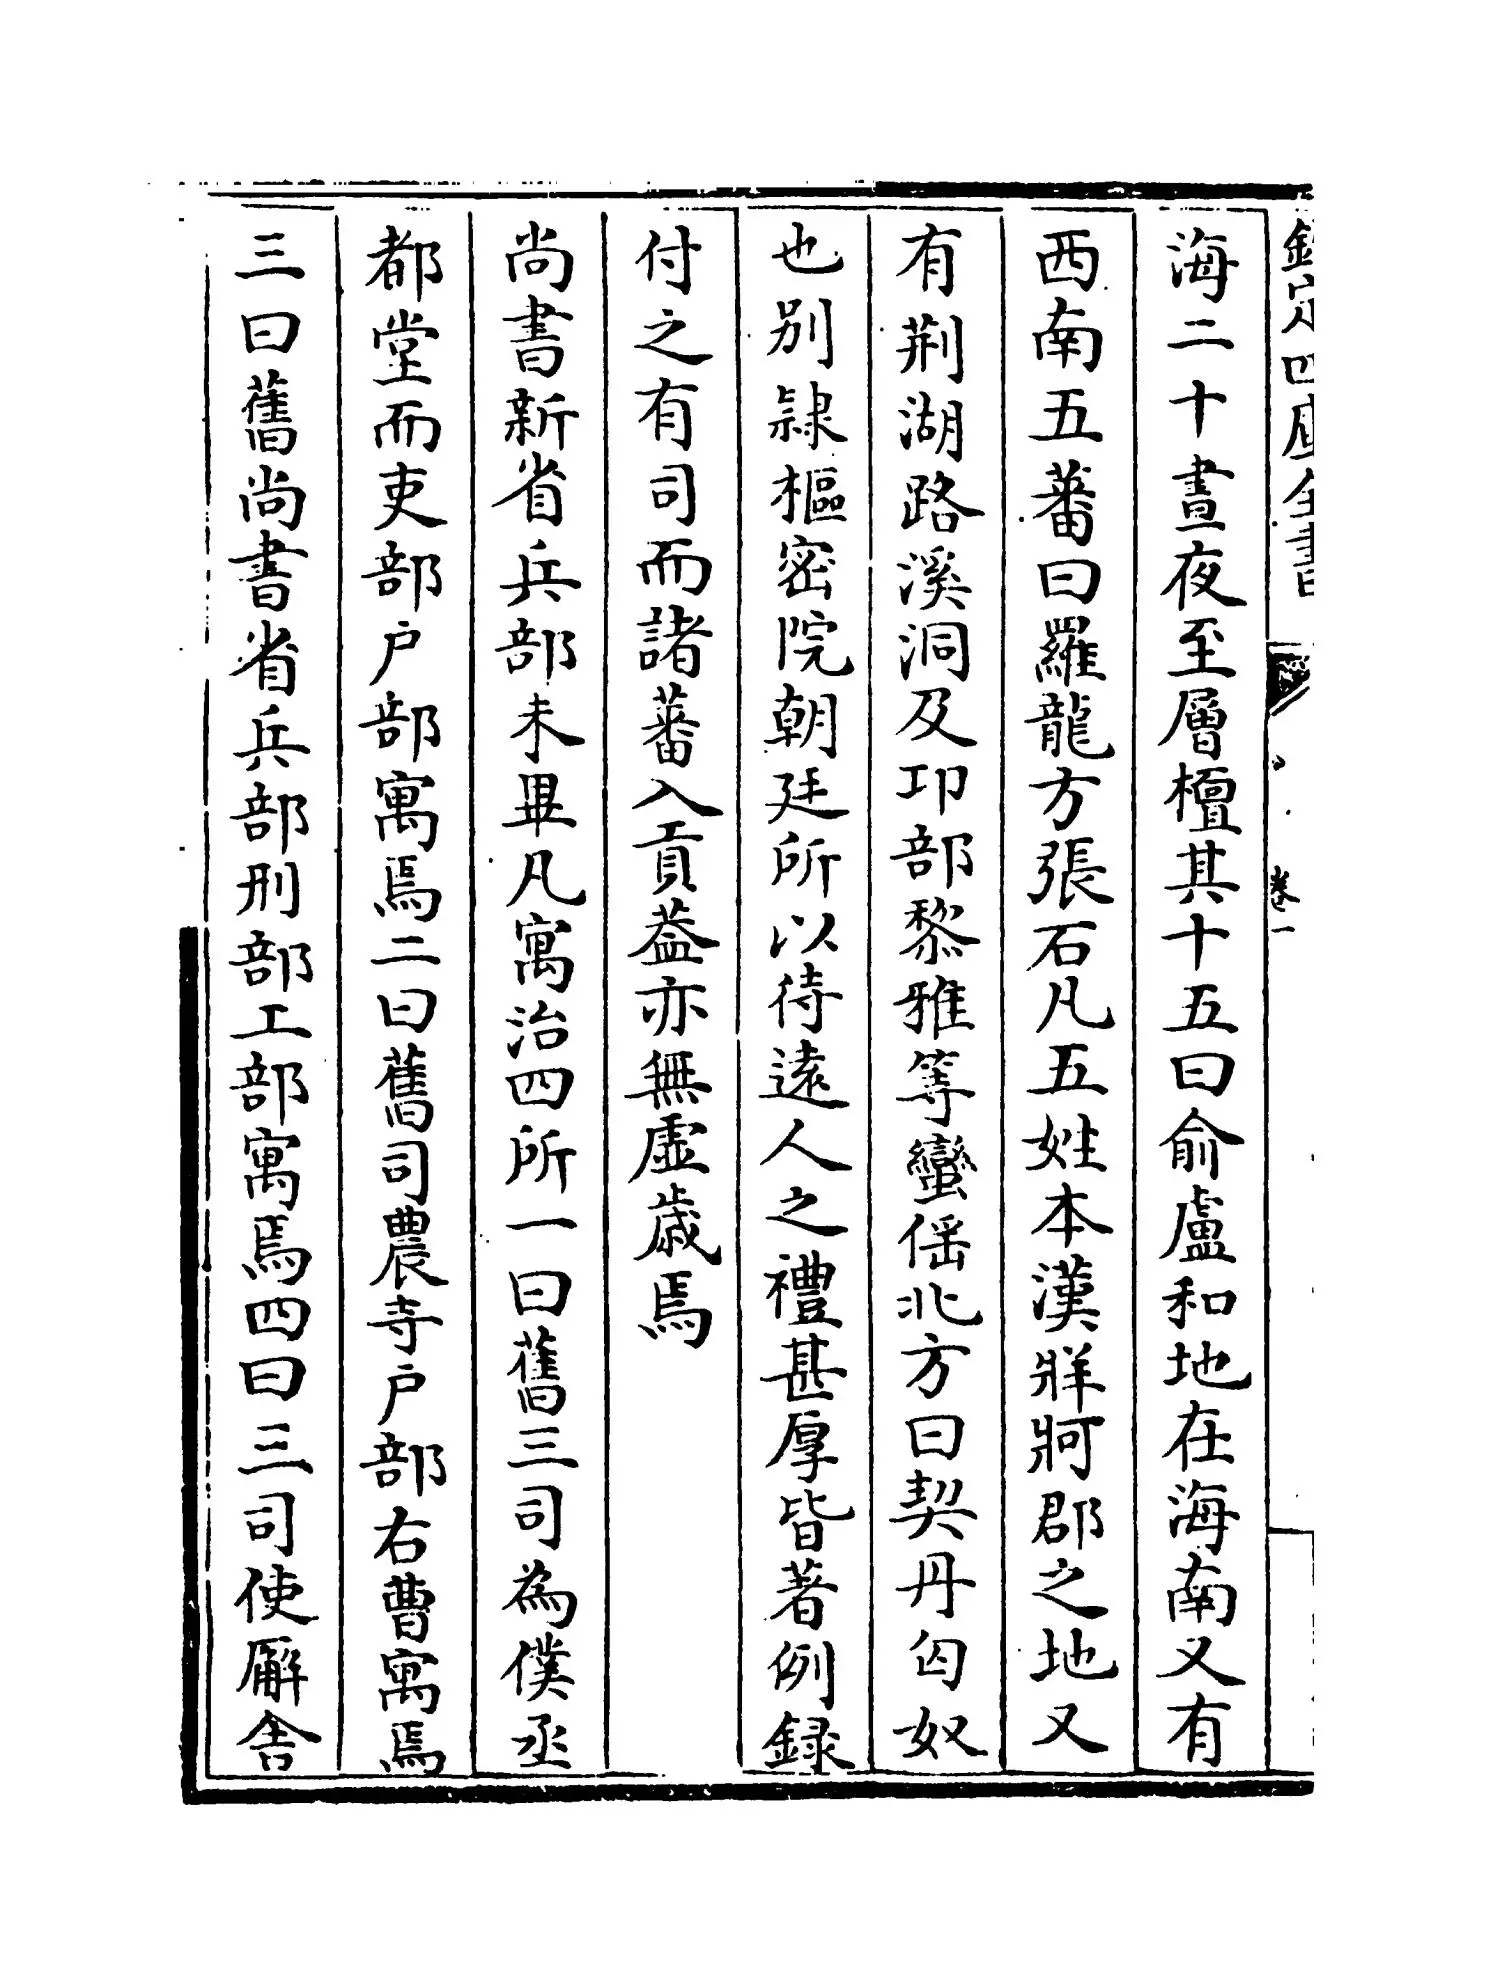 欽定四庫全書
卷一
海二十晝夜至層檀其十五曰俞盧和地在海南又有
西南五蕃曰羅龍方張石凡五姓本漢牂牁郡之地又
有荆湖路溪洞及邛部黎雅等蠻傜北方曰契丹匈奴
也别隷樞密院朝廷所以待逺人之禮甚厚皆著例録
付之有司而諸蕃入貢葢亦無虚歳焉
尚書新省兵部未畢凡寓治四所一曰舊三司為僕丞
都堂而吏部戸部寓焉二曰舊司農寺戸部右曹寓焉
三曰舊尚書省兵部刑部工部寓焉四曰三司使廨舎